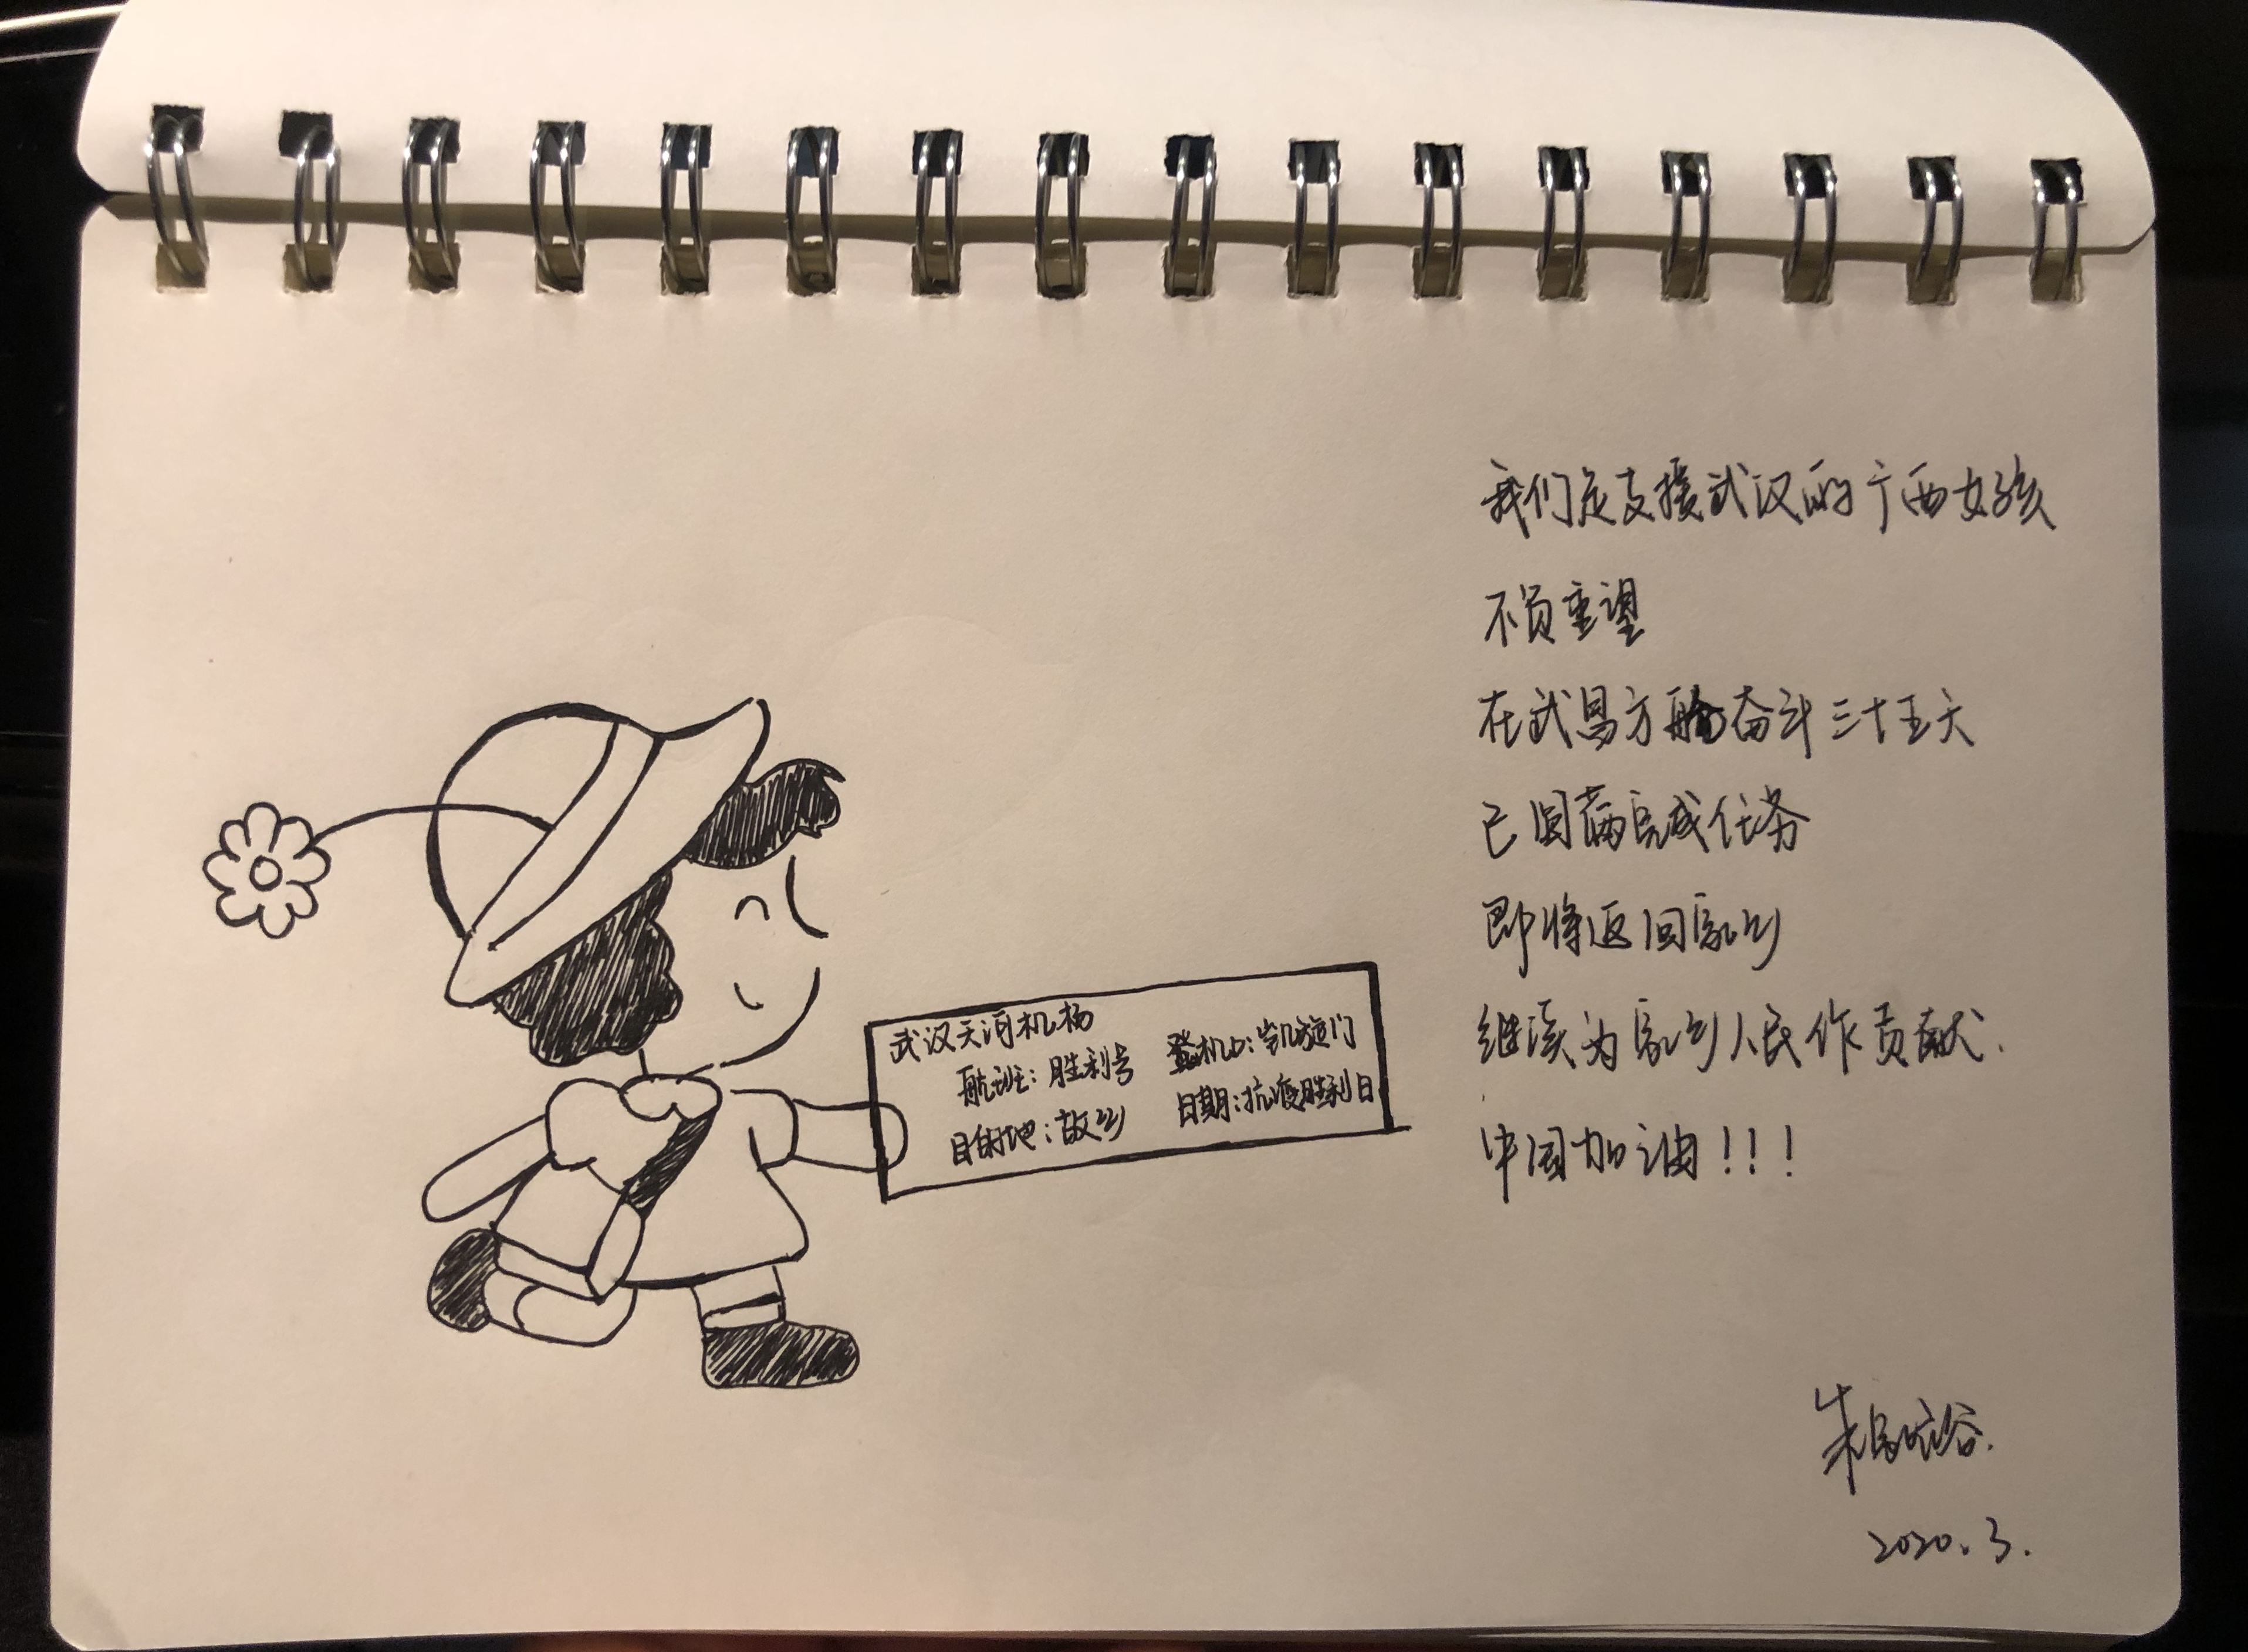 武汉天河机场
航班：胜利号 登机口：凯旋门
目的地：故乡 日期：抗疫胜利日
我们是支援武汉的广西女孩
不负重望
在武昌方舱奋斗三十五天
已圆满完成任务
即将返回家乡
继续为家乡人民作贡献.
中国加油！！！
2020.3.